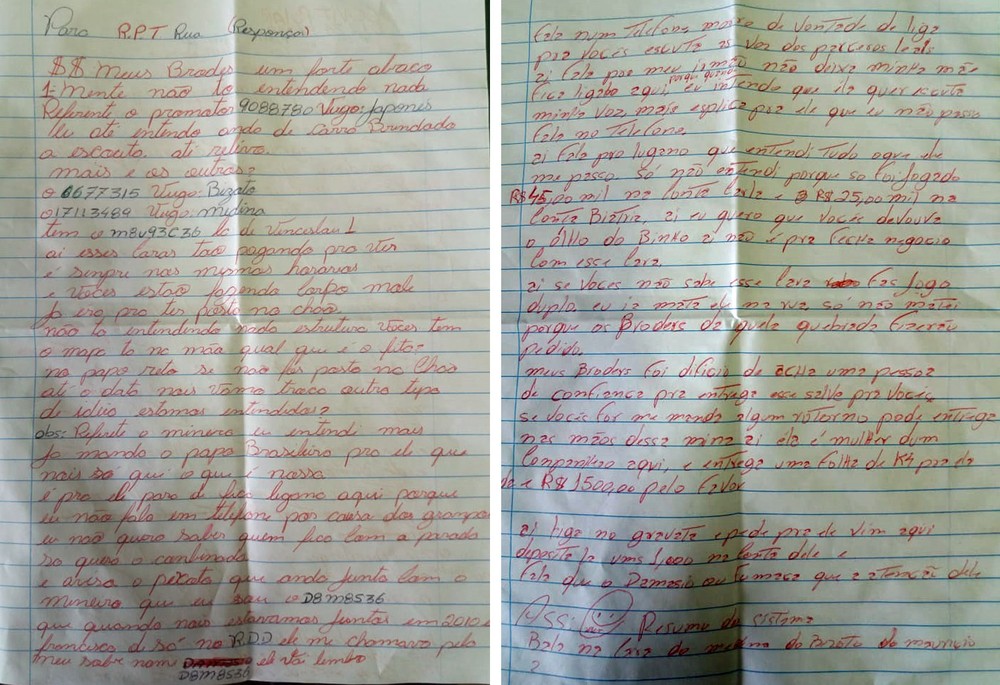 Para R.P.T Rua (Responsas)
$$ Meus Broders um forte abraço
1: Mente não to entendendo nada
Referente o promotor 9088780 Vugo: Japones
Eu até intendo ando de Carro Brindado
a escouta. até relevo.
mais e os outros?
o 6677315 Vugo: Bizato
o 17113489 Vugo: medina
tem o m8v93C36 la de Venceslau 1
ai esses caras tão pagando pra ver
e senpre nas mesmas horarias
e voces estão fazendo corpo mole
Ja era pra ter posto no chão
não to intendendo nada estrutura voces tem
o mapa to na mão qual que é a fita:
no papo reto se não for posto no Chão
até a data nois vamo traca outro tipo
de ideia estamos entendidos?
obs: Referete o mineiro eu entendi mais
Ja mando o papo Brasileiro pra ele que
nois só qui o que é nosso
e pra ele para de fica ligano aqui porque
eu não falo em telefone por causa dos grampos
eu não quero saber quem fico com a parada
so quero o conbinado
e avisa o peixoto que ando junto com o
mineiro que eu sou o D8M8536
que quando nois estavamos juntos em 2010
francisco di só no R.D.D ele me chamava pelo
meu sobre nome ele vai lembra
D8M8536
fala num Telefone morro de vontade de liga
pra voces escuta as voz dos parceros leals
ai fala por meu irmão não deixa minha mãe
fica ligano aqui porque quando eu intendo que ela quer escuta
minha voz, mais esplica pra ele que eu não posso
fala no Telefone.
ai fala pro lugano que entendi Tudo oque ele
me passo. só não entendi porque so foi jogado
R$45,00 mil na conta Carla e R$25,00 mil na
conta Biatriz, ai eu quero que voces devolva
o óLHo do Binxo ai não é pra Fecha negocio
com esse cara.
ai se voces não sabe esse cara Faz Jogo
duplo eu ia mata ele na rua só não matei
porque os Broders da quela quebrada fizerão
pedido.
meus Broders Foi dificio de acha uma pessoa
de confiança pra entrega esse salve pra voceis
se voceis for me manda algum retorno pode entrega
nas mãos dessa mina ai ela é mulher dum
Companheiro aqui, e entrega uma folha de K4 pra ela
e R$1500,00 pelo Favor
ai liga no gravata e pede pra ele vim aqui
deposita ja uns 1,000 na conta dele e
Fala que o Damasio ou Fumaça que a atenção dele
Ass: Resumo do sistema
Bala na cara do medina do Bizoto do mauricio